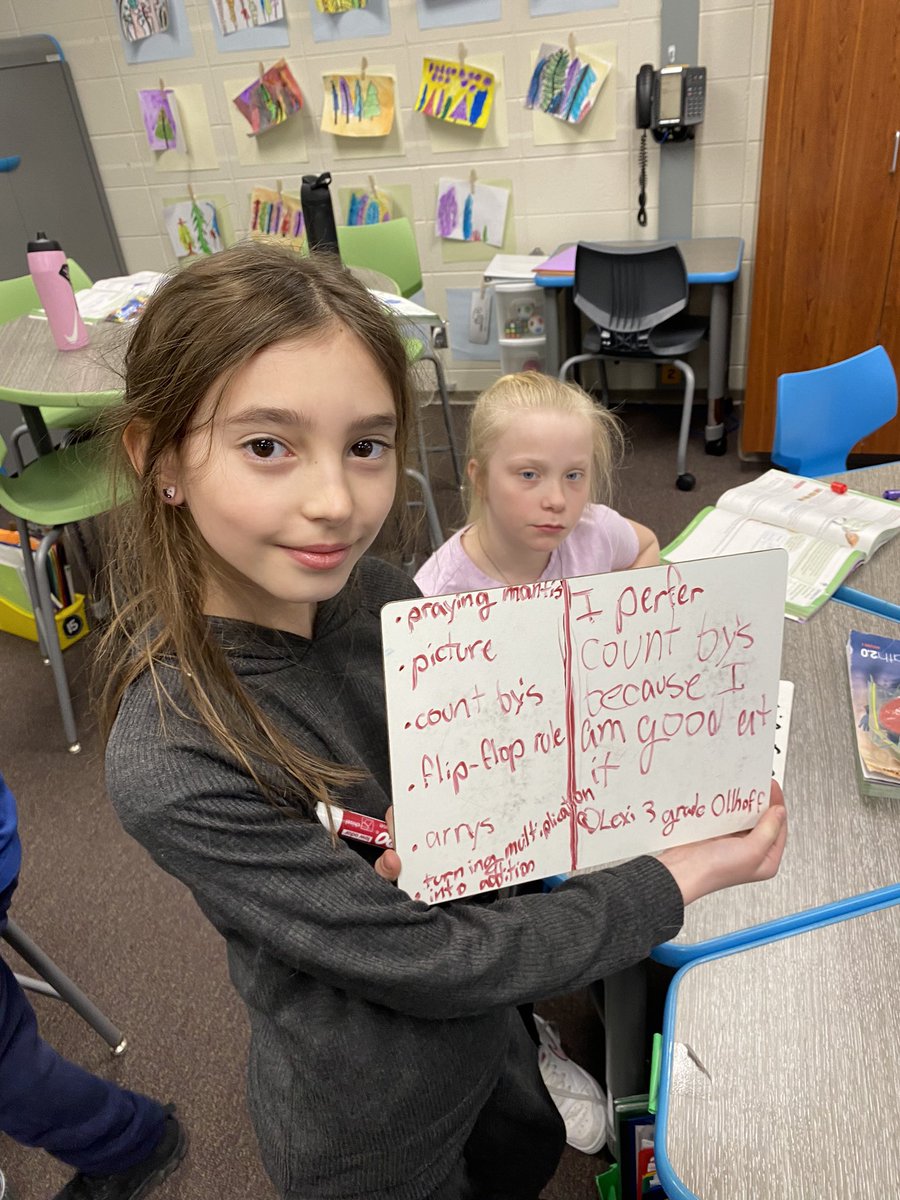 • praying mantis
• picture
• count by's
• flip-flop rule
• arrys
turning multiplication
• into addition
I perfer
count by's
because I
am good at
it
Lexi 3 grade Ollhoff
15